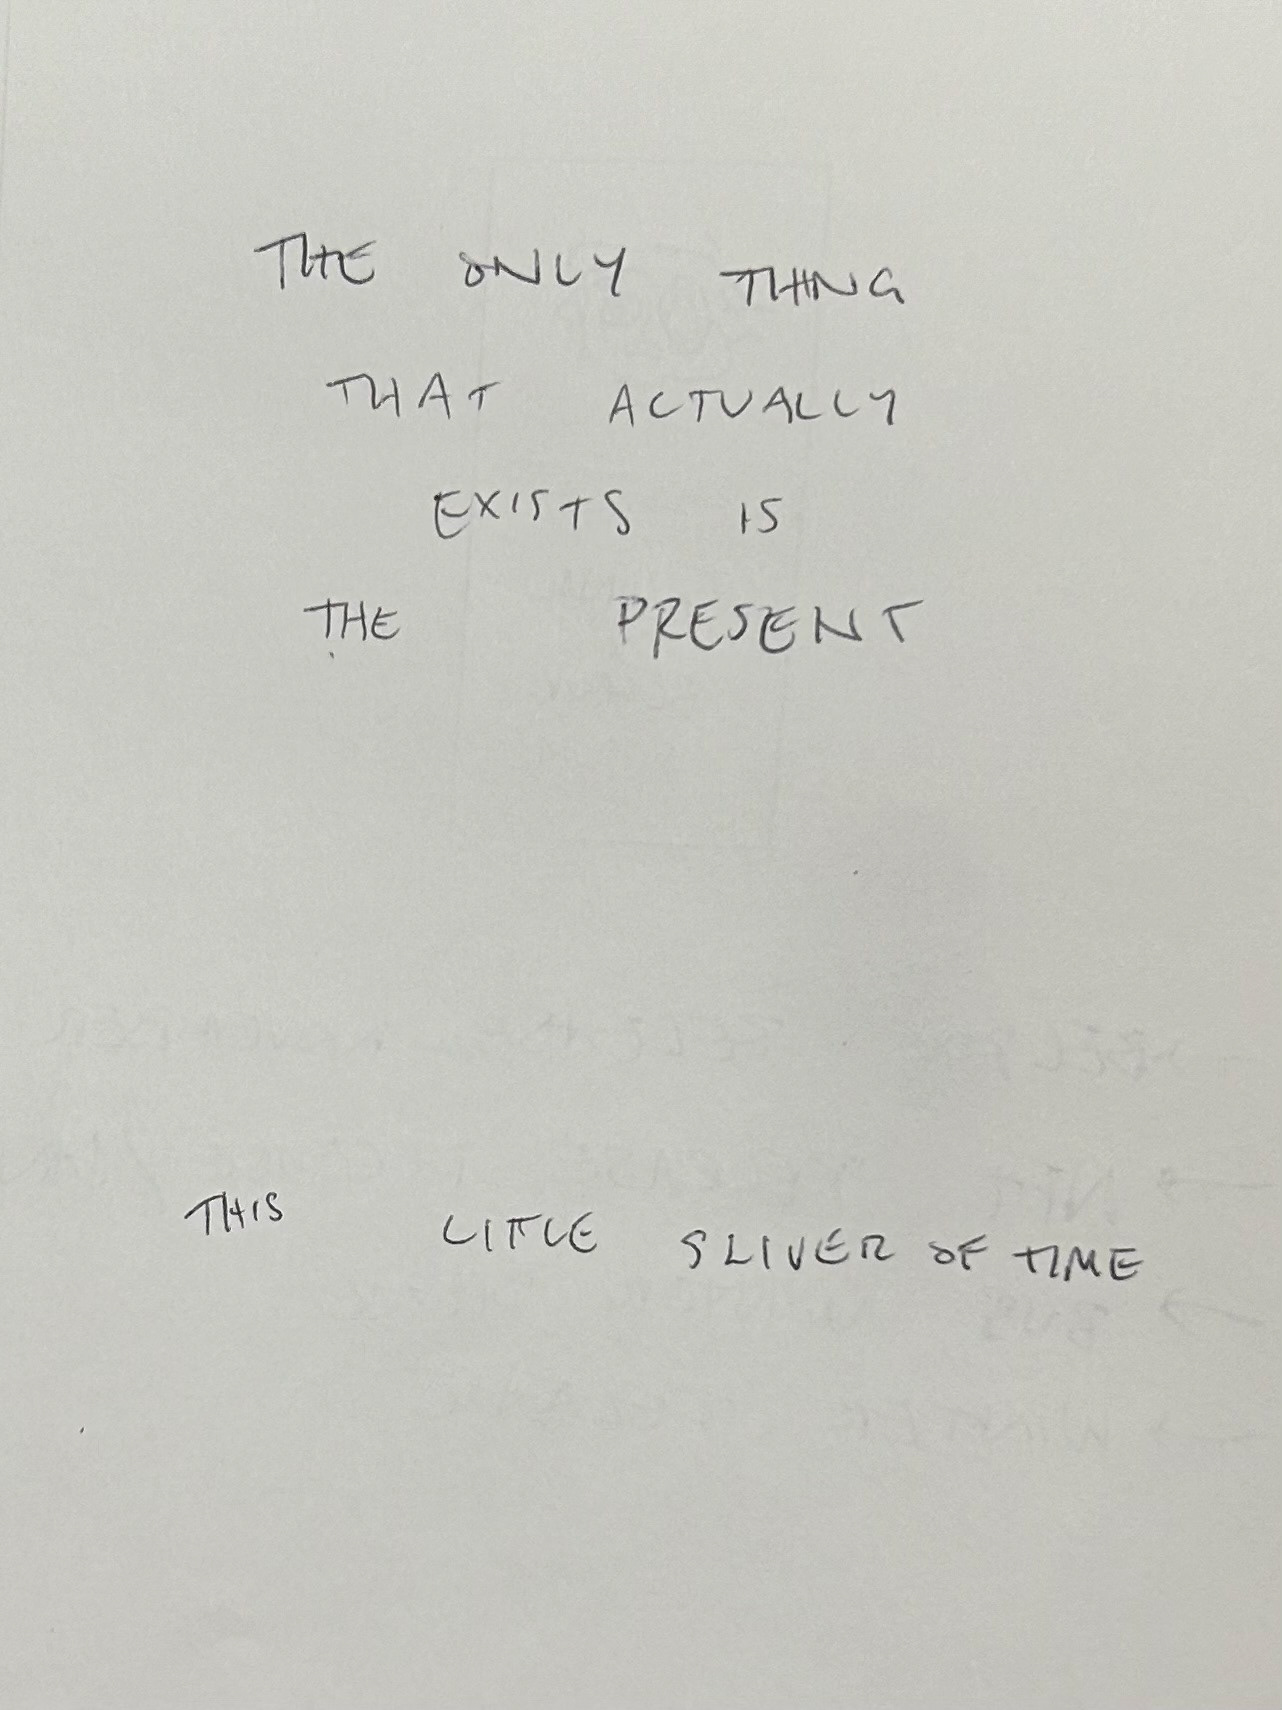 THE ONLY THING
THAT ACTUALLY
EXISTS IS
THE PRESENT
THIS LITTLE SLIVER OF TIME